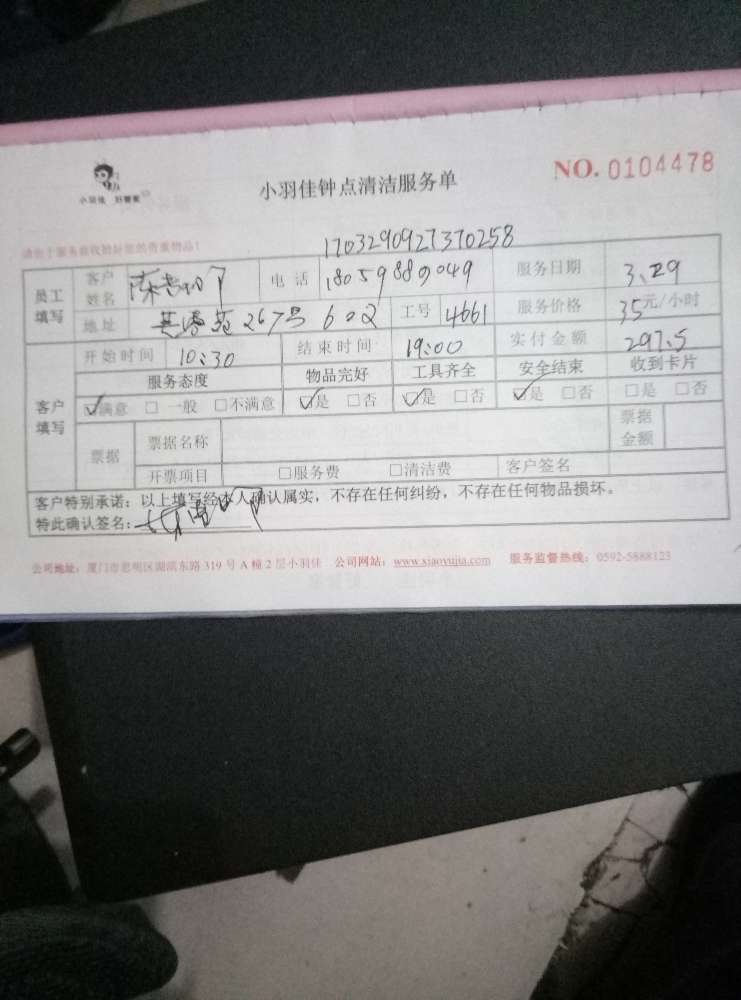 小羽佳 好管家
小羽佳钟点清洁服务单
NO. 0104478
请勿于服务前收拾好您的贵重物品!
1703290927370258
员工填写 客户姓名 电话 18059889049 服务日期 3.29
地址 267号602 工号 4661 服务价格 35元/小时
客户填写 开始时间 10:30 结束时间 19:00 实付金额 297.5
服务态度 物品完好 工具齐全 安全结束 收到卡片
☑满意 □一般 □不满意 ☑是 □否 ☑是 □否 ☑是 □否 □是 □否
票据 票据名称 票据金额
开票项目 □服务费 □清洁费 客户签名
客户特别承诺:以上填写经本人确认属实,不存在任何纠纷,不存在任何物品损坏。
特此确认签名:
公司地址:厦门市思明区湖滨东路319号A幢2层小羽佳 公司网站:www.xiaoyujia.com 服务监督热线:0592-5888123